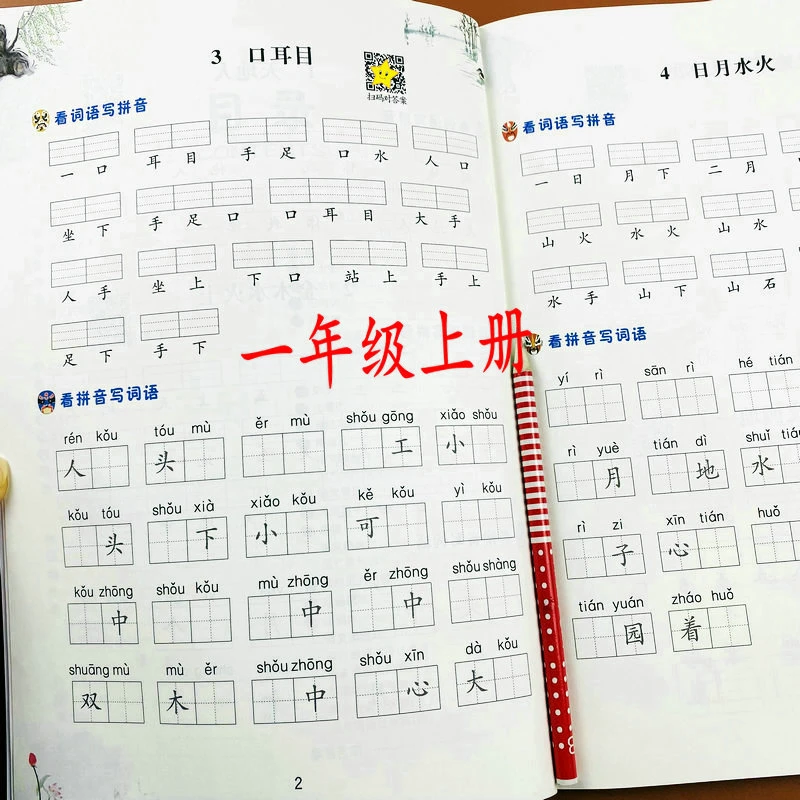 3 口耳目
扫码对答案
看词语写拼音
一口 耳目 手足 口水 人口
坐下 手足口 口耳目 大手
人手 坐上 下口 站上 手上
足下 手下
一年级上册
看拼音写词语
rén kǒu tóu mù ěr mù shǒu gōng xiǎo shǒu
人 头 工 小
kǒu tóu shǒu xià xiǎo kǒu kě kǒu yì kǒu
头 下 小 可
kǒu zhōng shǒu kǒu mù zhōng ěr zhōng shǒu shàng
中 中 中
shuāng mù mù ěr shǒu zhōng shǒu xīn dà kǒu
双 木 中 心 大
2
4 日月水火
看词语写拼音
一日 月下 二月
山火 水火 山水
水手 山下 山石
看拼音写词语
yí rì sān rì hé tián
rì yuè tián dì shuǐ tián
月 地 水
rì zi xīn tián huǒ
子 心
tián yuán zháo huǒ
园 着